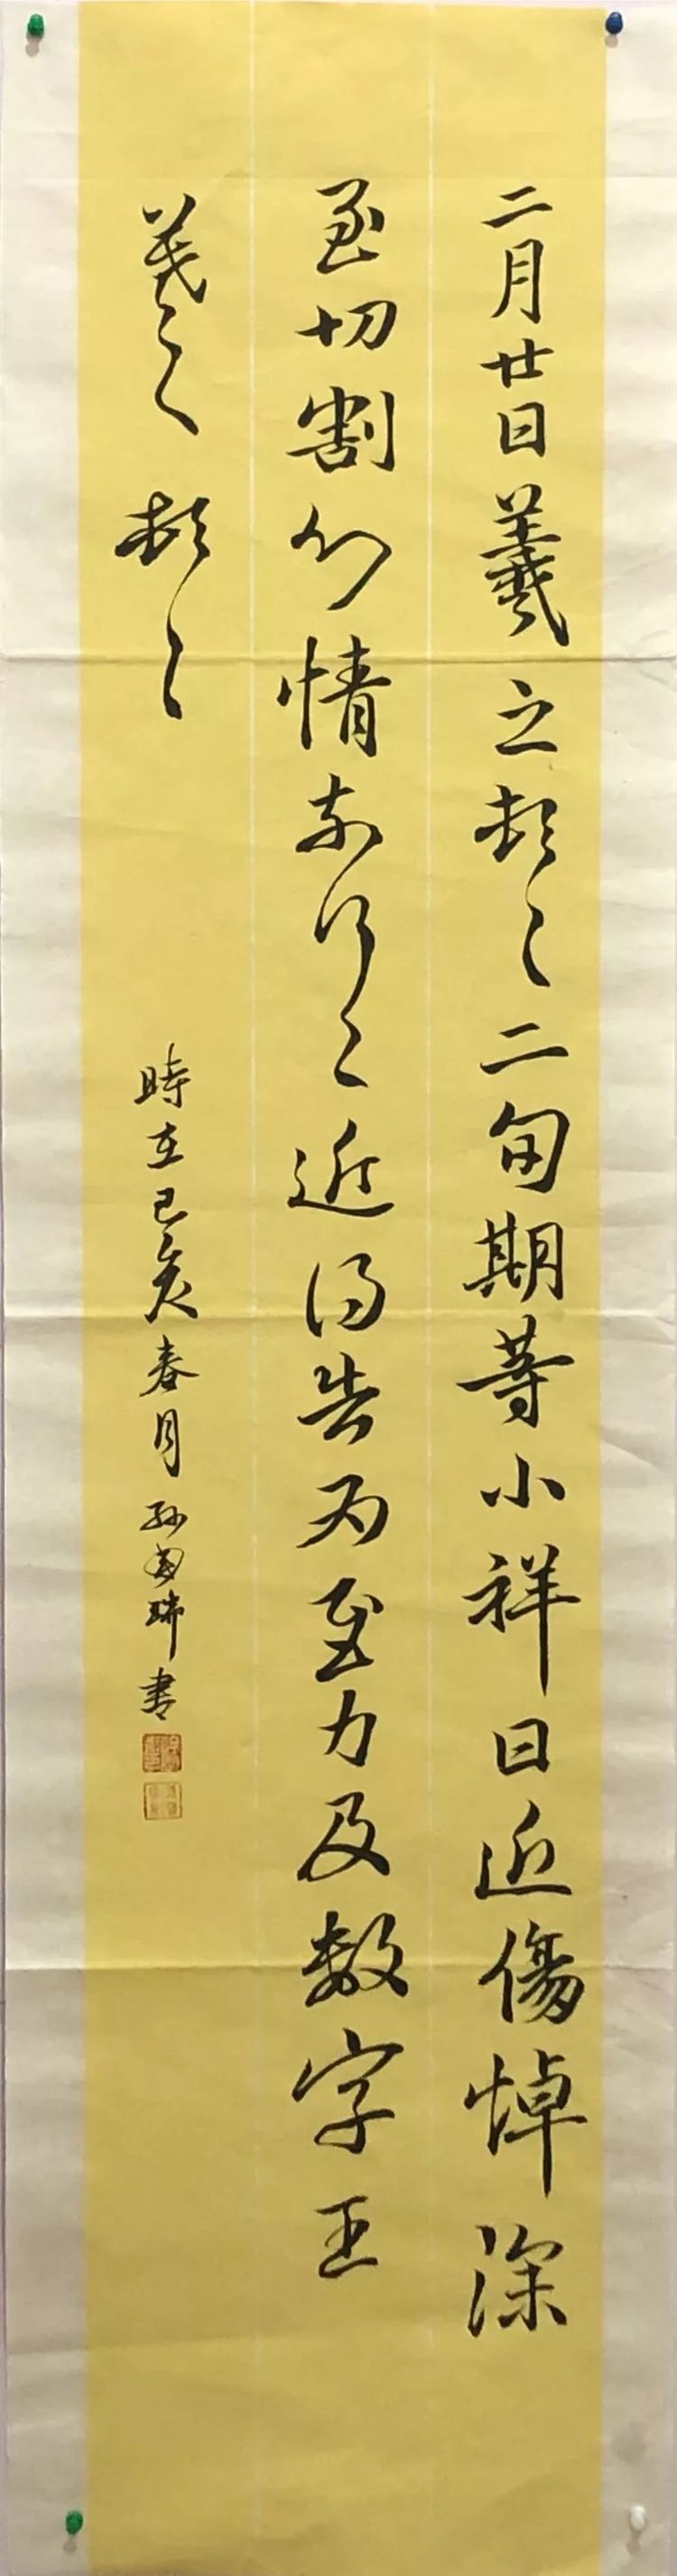 二月廿日羲之頓首二旬期等小祥日近傷悼深
至切割心情奈何〻近得告為力及數字王
羲之頓首
時在己亥春月孫瑞書